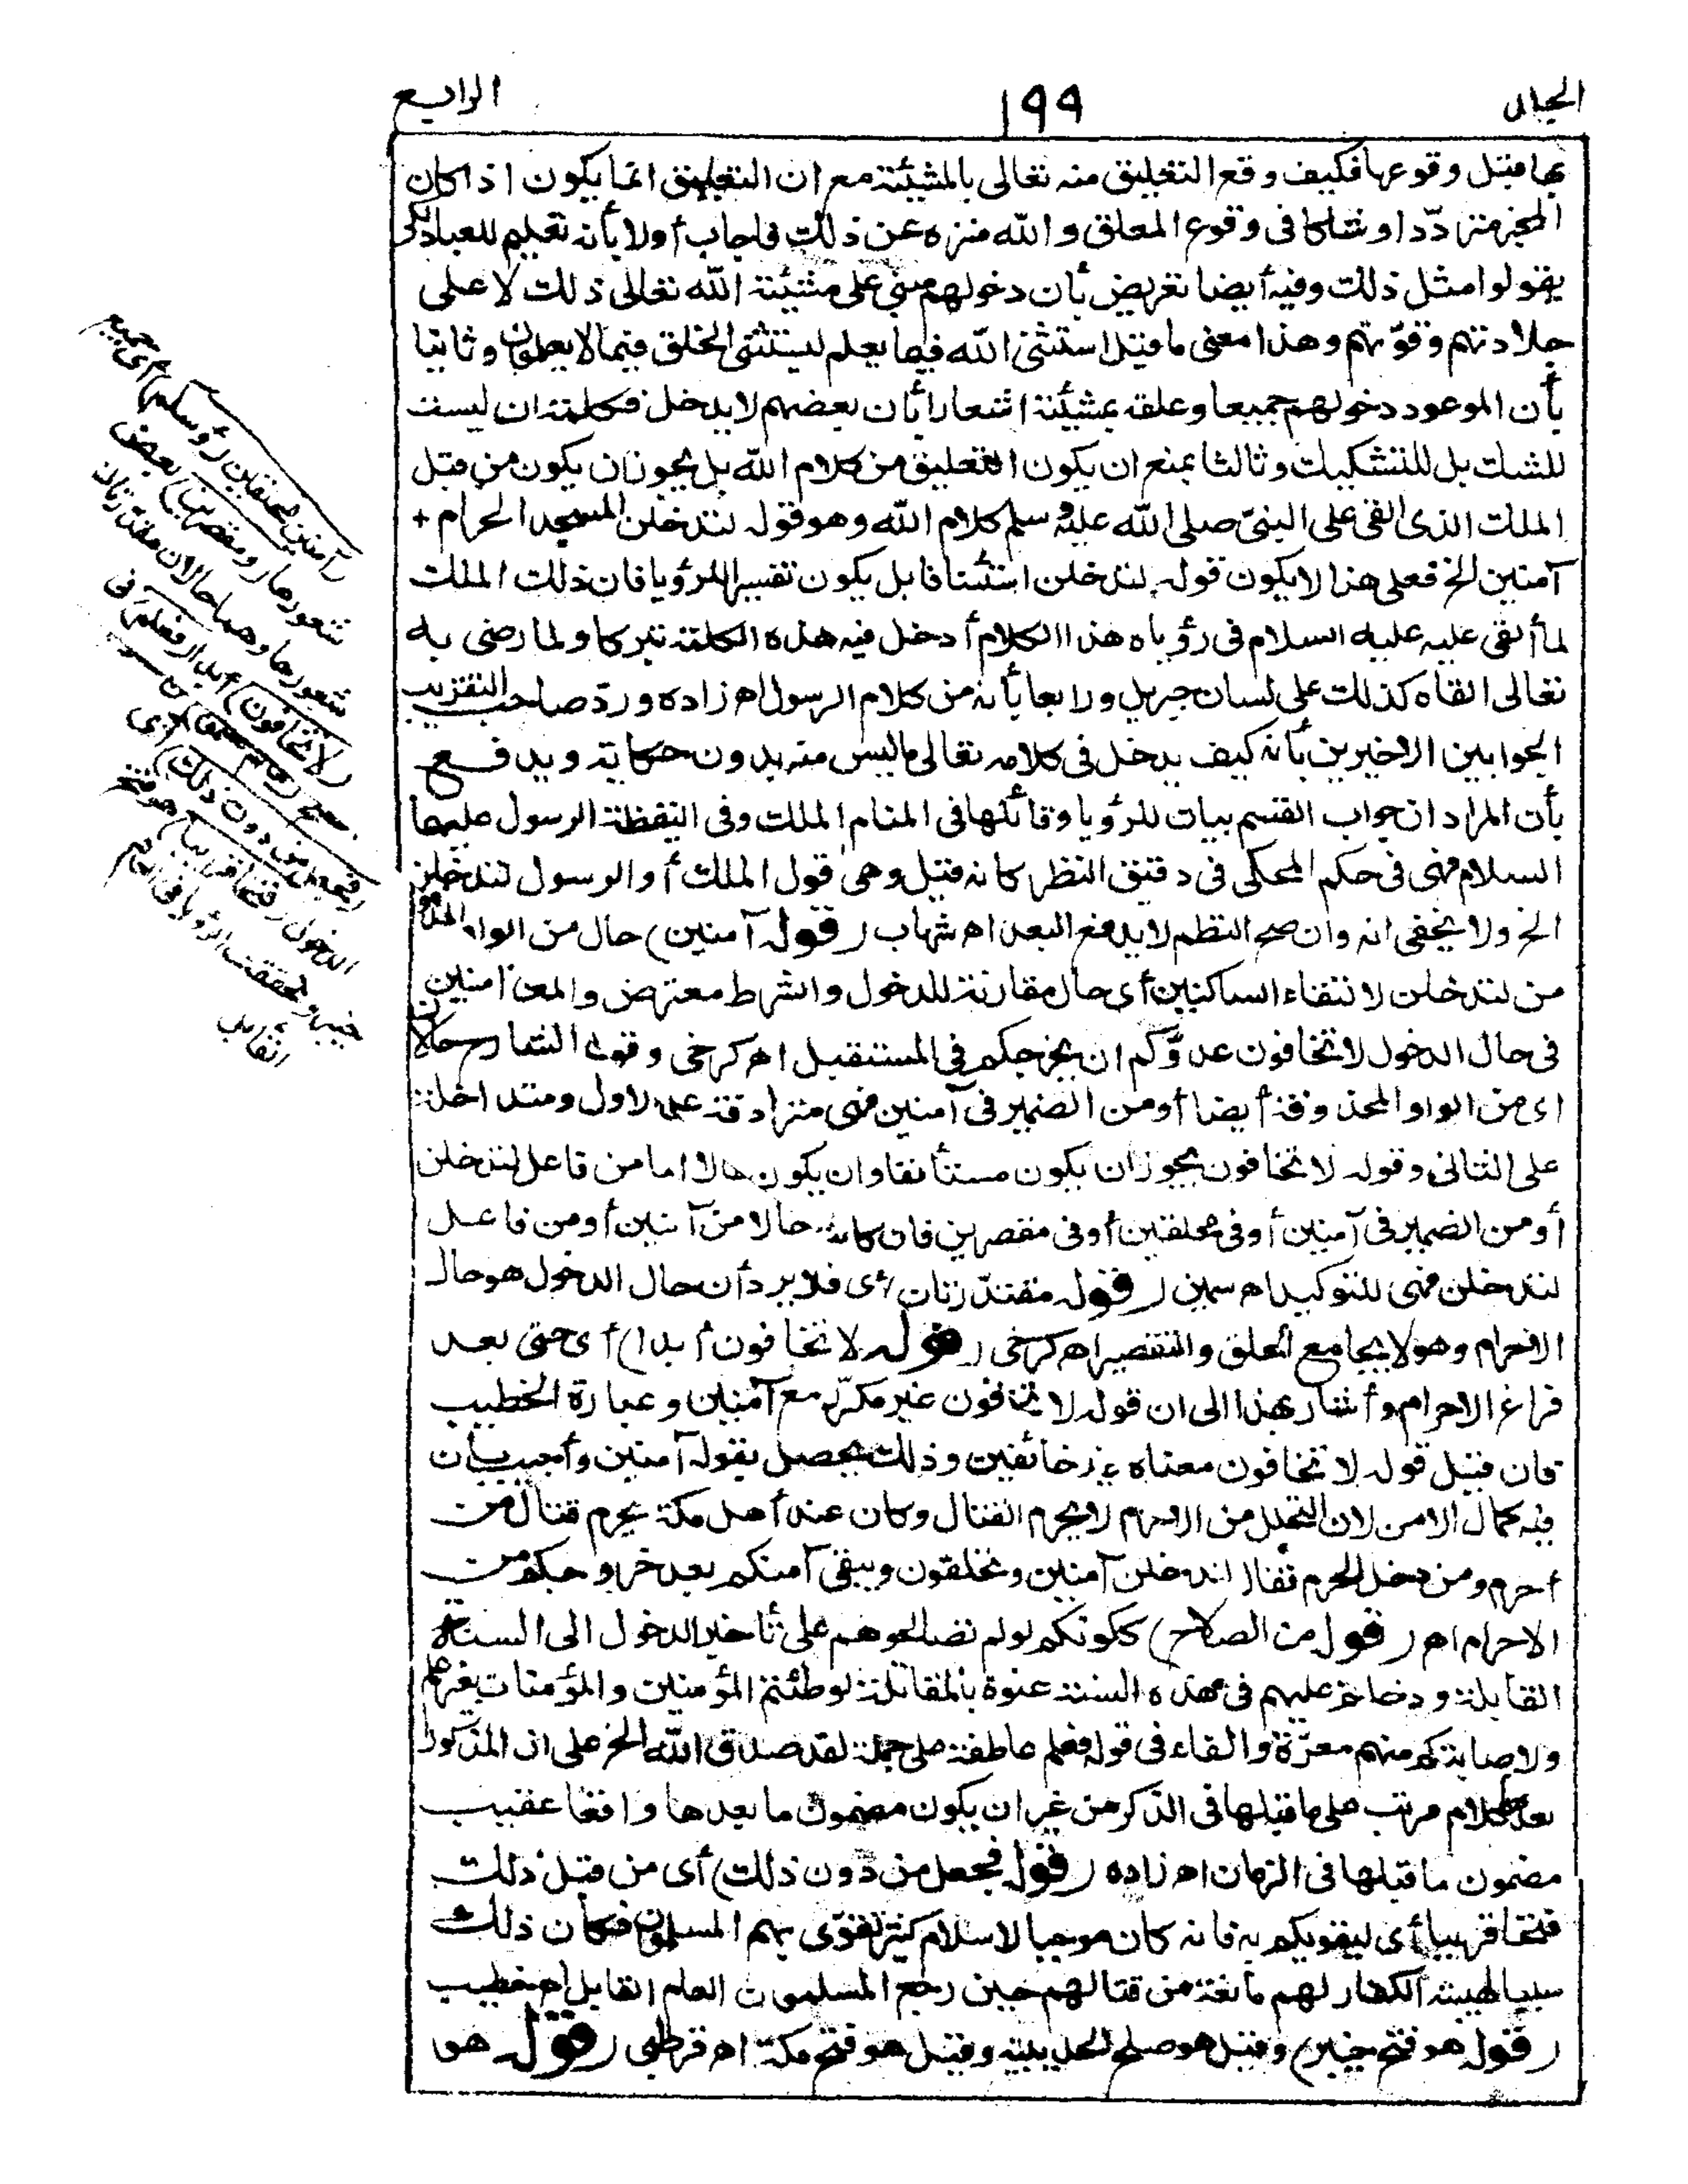 الجمل
١٩٩
الرابع
بها قبل وقوعها فكيف وقع التعليق منه تعالى بالمشيئة مع ان التعليق انما يكون اذا كان
المخبر مترددا او شاكا فى وقوع المعلق والله منزه عن ذلك فاجاب أولا بأنه تعليم للعباد لكى
يقولوا مثل ذلك وفيه أيضا تعريض بأن دخولهم مبنى على مشيئة الله تعالى ذلك لا على
جلادتهم وقوّتهم وهذا معنى ما قيل استثنى الله فيما يعلم ليستثنى الخلق فيما لا يعلمون وثانيا
بأن الموعود دخولهم جميعا وعلقه بمشيئة اشعارا بأن بعضهم لا يدخل فكلمة ان ليست
للشك بل للتشكيك وثالثا بمنع ان يكون التعليق من كلام الله بل يجوز ان يكون من قبل
الملك الذى القى على النبىّ صلى الله عليه وسلم كلام الله وهو قوله لتدخلن المسجد الحرام +
آمنين الخ فعلى هذا لا يكون قوله لتدخلن استئنافا بل يكون تفسيرا للرؤيا فان ذلك الملك
لما ألقى عليه عليه السلام فى رؤياه هذا الكلام أدخل فيه هذه الكلمة تبركا ولما رضى به
تعالى القاه كذلك على لسان جبريل ورابعا بأنه من كلام الرسول اه زاده وردّ صاحب التقريب
الجوابين الاخيرين بأنه كيف يدخل فى كلامه تعالى ما ليس منه بدون حكاية ويدفع
بأن المراد ان جواب القسم بيان للرؤيا وقائلها فى المنام الملك وفى اليقظة الرسول عليهما
السلام فهى فى حكم المحكى فى دقيق النظر كانه قيل وهى قول الملك أو الرسول لتدخلن
الخ ولا يخفى انه وان صح النظم لا يدفع البعد اه شهاب (قوله آمنين) حال من الواو المحذوفة
من لتدخلن لالتقاء الساكنين أى حال مقارنة للدخول والشرط معترض والمعنى آمنين
فى حال الدخول لا تخافون عدوّكم ان يخرجكم فى المستقبل اه كرخى وقول الشارح حالان
اى من الواو المحذوفة أيضا أو من الضمير فى آمنين فهى مترادفة على الاول ومتداخلة
على الثانى وقوله لا تخافون يجوز ان يكون مستأنفا وان يكون حالا اما من فاعل لتدخلن
أو من الضمير فى آمنين أو فى محلقين أو فى مقصرين فان كانت حالا من آمنين أو من فاعل
لتدخلن فهى للتوكيد اه سمين (قوله مقدّرتان) أى فلا يرد أن حال الدخول هو حال
الاحرام وهو لا يجامع الحلق والتقصير اه كرخى (قوله لا تخافون أبدا) أى حتى بعد
فراغ الاحرام وأشار بهذا الى ان قوله لا تخافون غير مكرّر مع آمنين وعبارة الخطيب
فان قيل قوله لا تخافون معناه غير خائفين وذلك يحصل بقوله آمنين وأجيب بأن
فيه كمال الامن لان التحلل من الاحرام لا يحرم القتال وكان عند أهل مكة يحرم قتال من
أحرم ومن دخل الحرم فقال لتدخلن آمنين وتحلقون ويبقى آمنكم بعد خروجكم من
الاحرام اه (قوله من الصلاح) ككونكم لو لم تصالحوهم على تأخير الدخول الى السنة
القابلة ودخلتم عليهم فى هذه السنة عنوة بالمقاتلة لوطئتم المؤمنين والمؤمنات بغير علم
ولاصابتكم منهم معرّة والفاء فى قوله فعلم عاطفة على جملة لقد صدق الله الخ على ان المذكور
بعدها كلام مرتب على ما قبلها فى الذكر من غير ان يكون مضمون ما بعدها واقعا عقيب
مضمون ما قبلها فى الزمان اه زاده (قوله فجعل من دون ذلك) أى من قبل ذلك
فتحا قريبا أى ليقويكم به فانه كان موجبا لاسلام كثير تقوّى بهم المسلمون فكان ذلك
سببا لهيبة الكفار لهم مانعة من قتالهم حين رجع المسلمون العام القابل اه خطيب
(قوله هو فتح خيبر) وقيل هو صلح الحديبية وقيل هو فتح مكة اه قرطبى (قوله هو
(آمنين محلقين رؤسكم) أى جميع
شعورها (ومقصرين) بعض
شعورها وهما حالان مقدرتان
(لا تخافون) أبدا (فعلم) فى
الصلح (ما لم تعلموا) من
(فجعل من دون ذلك) أى
الدخول (فتحا قريبا) هو فتح
خيبر وتحققت الرؤيا فى العام
القابل